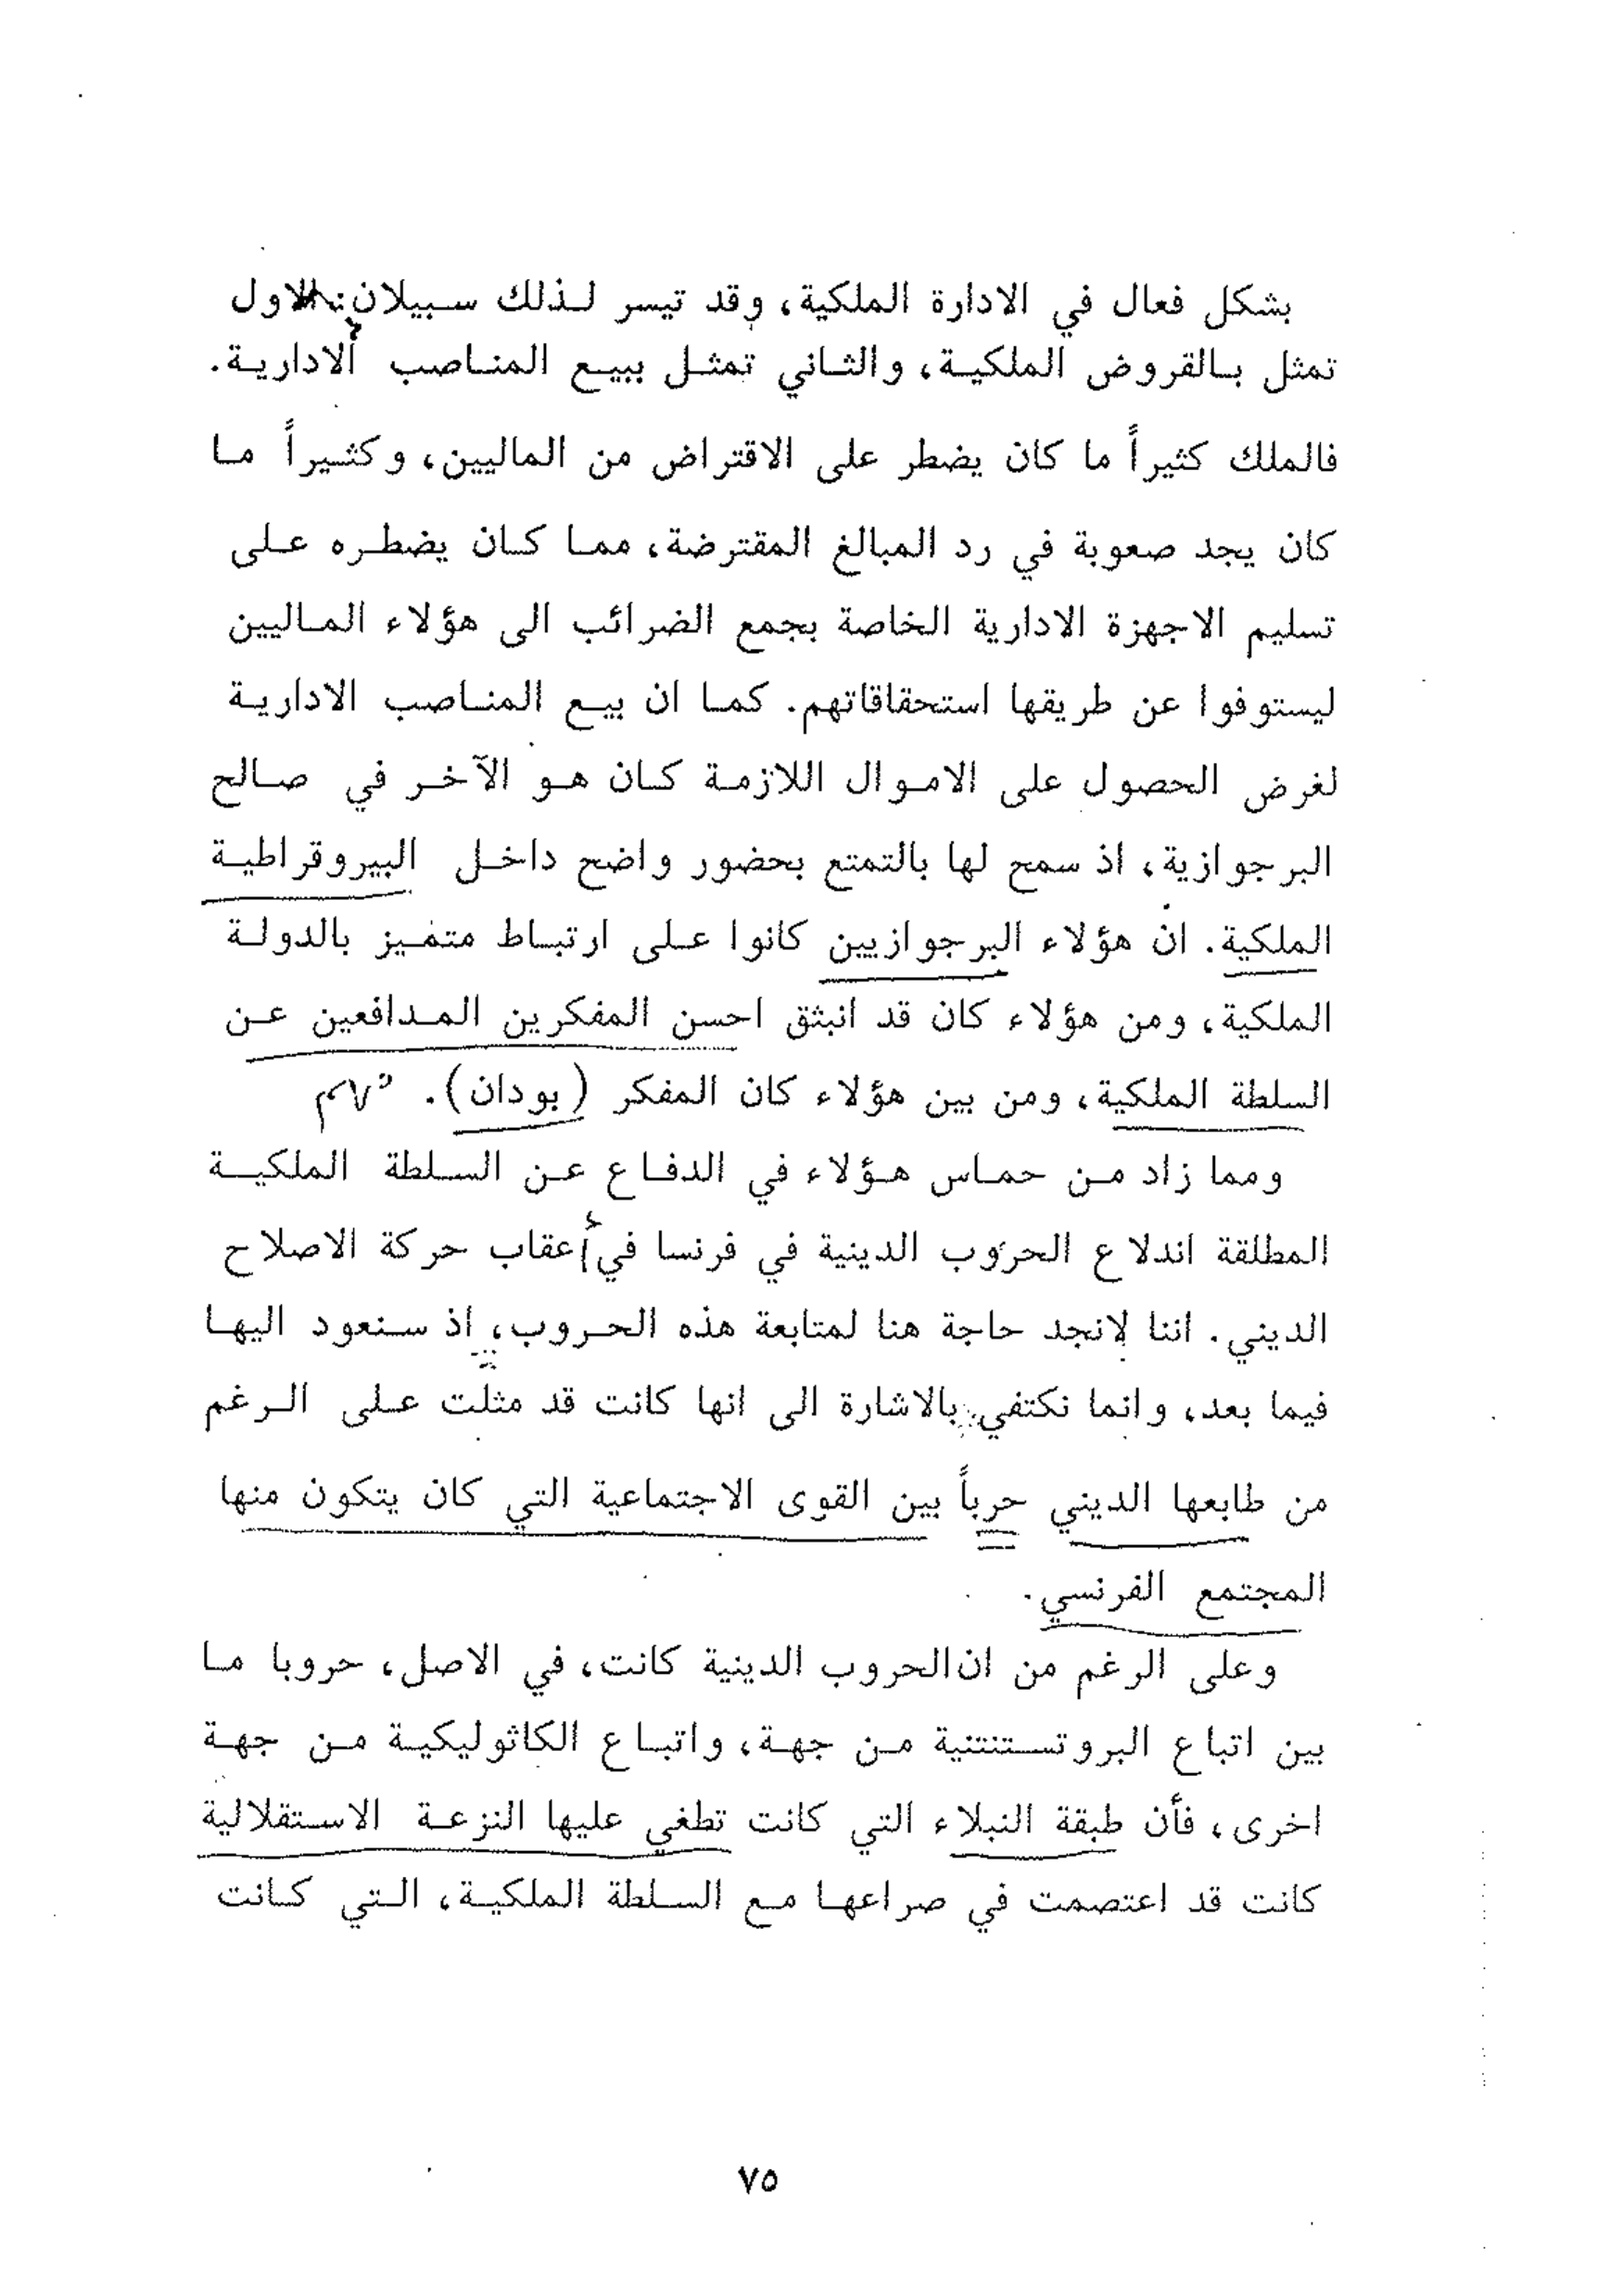 بشكل فعال في الادارة الملكية، وقد تيسر لـذلك سـبيلان: الاول
تمثل بـالقروض الملكيـة، والثـاني تمثـل ببيـع المنـاصب الاداريـة.
فالملك كثيراً ما كان يضطر على الاقتراض من الماليين، وكثـيراً مـا
كان يجد صعوبة في رد المبالغ المقترضة، ممـا كـان يضطـره عـلى
تسليم الاجهزة الادارية الخاصة بجمع الضرائب الى هؤلاء المـاليين
ليستوفوا عن طريقها استحقاقاتهم. كمـا ان بيـع المنـاصب الاداريـة
لغرض الحصول على الامـوال اللازمـة كـان هـو الآخـر في صـالح
البرجوازية، اذ سمح لها بالتمتع بحضور واضح داخـل البيروقراطيـة
الملكية. ان هؤلاء البرجوازيين كانوا عـلى ارتبـاط متمـيز بالدولـة
الملكية، ومن هؤلاء كان قد انبثق احسن المفكرين المـدافعين عـن
السلطة الملكية، ومن بين هؤلاء كان المفكر (بودان).
ومما زاد مـن حمـاس هـؤلاء في الدفـاع عـن السـلطة الملكيـــة
المطلقة اندلاع الحروب الدينية في فرنسا في أعقاب حركة الاصلاح
الديني. اننا لانجد حاجة هنا لمتابعة هذه الحـروب، اذ سـنعود اليهـا
فيما بعد، وانما نكتفي بالاشارة الى انها كانت قد مثلت عـلى الـرغم
من طابعها الديني حرباً بين القوى الاجتماعية التي كان يتكون منها
المجتمع الفرنسي.
وعلى الرغم من ان الحروب الدينية كانت، في الاصل، حروبا مـا
بين اتباع البروتسـتنتنية مـن جهـة، واتبـاع الكاثوليكيـة مـن جهـة
اخرى، فأن طبقة النبلاء التي كانت تطغي عليها النزعـة الاسـتقلالية
كانت قد اعتصمت في صراعهـا مـع السـلطة الملكيـة، الـتي كـانت
٧٥